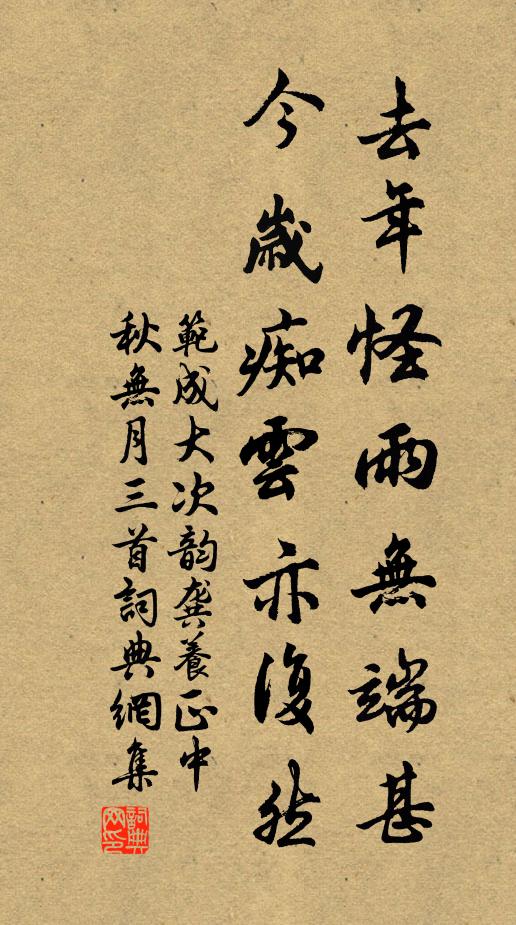 去年怪雨無端甚
今歲痴雲亦復然
範成大次韵龔養正中
秋無月三首詞典網集
詞典网印